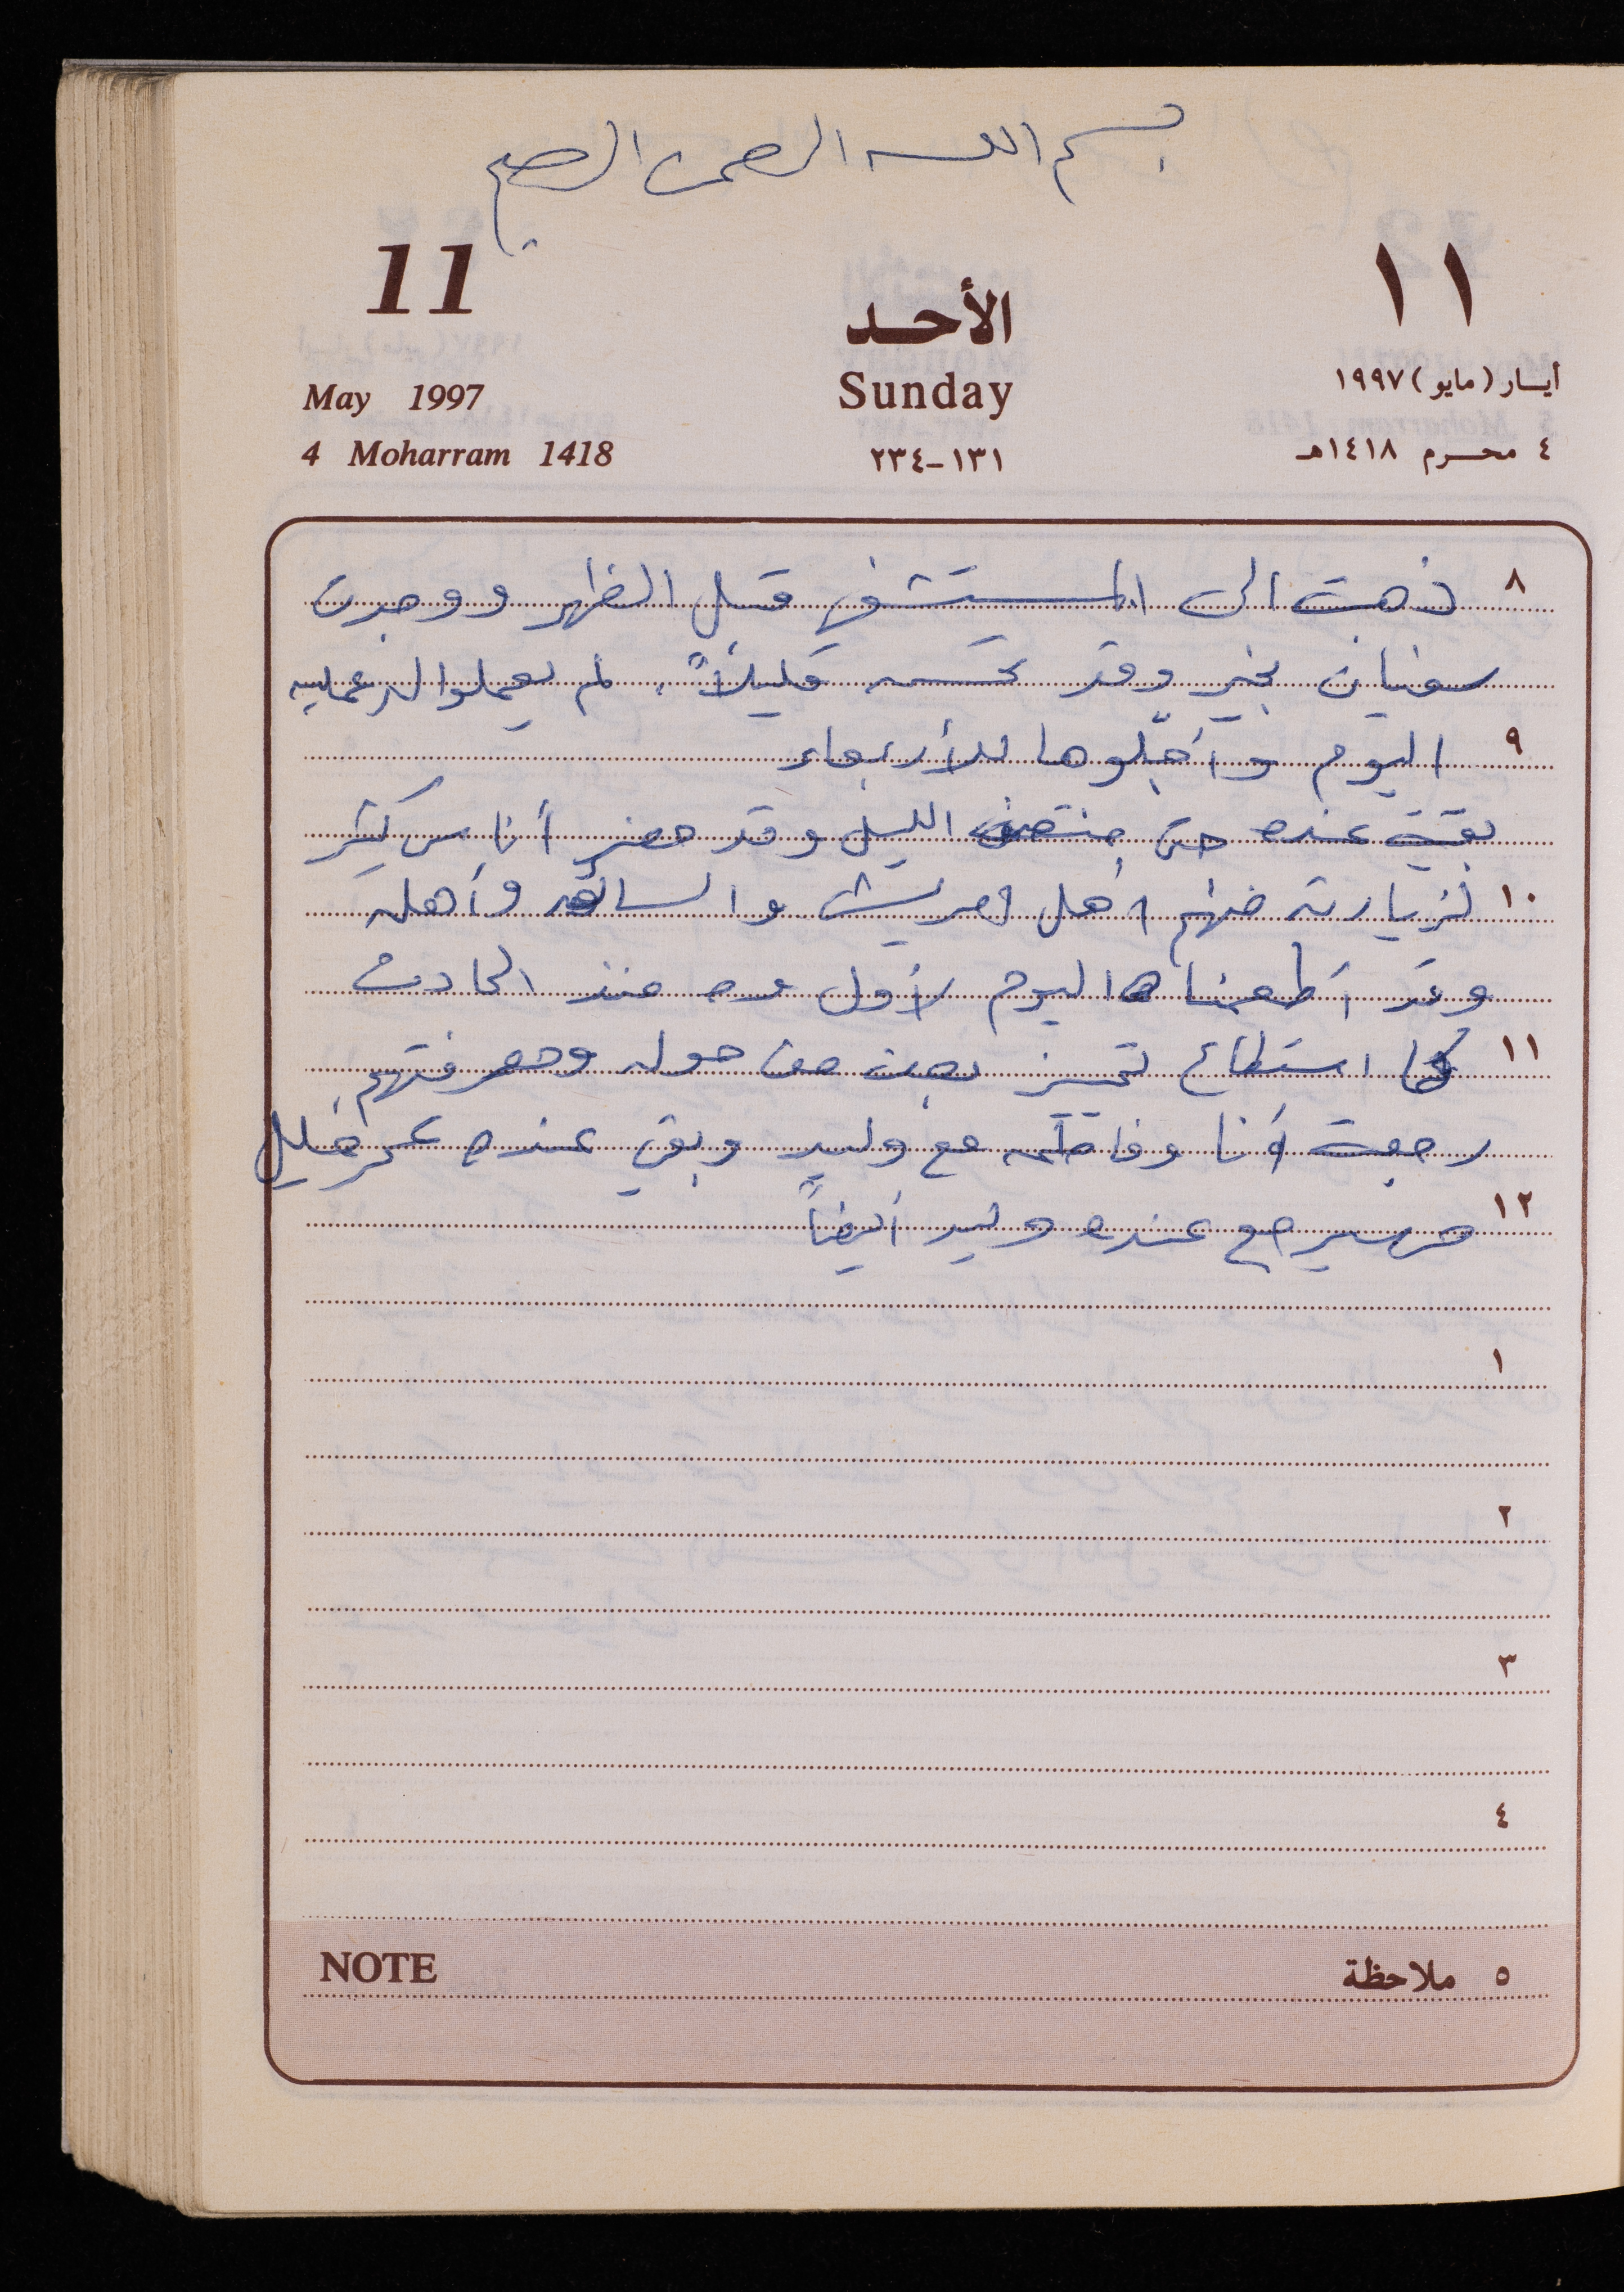 بسم الله الرحمن الرحيم
11 الأحد ١١
May 1997 Sunday أيـار (مايو) ١٩٩٧
4 Moharram 1418 ١٣١-٢٣٤ ٤ محـرم ١٤١٨هـ
٨ ذهبت الى المستشفى قبل الظهر ووجدت
سفيان بخير وقد تحسن قليلاً. لم يعملوا له عمليه
٩ اليوم وأجّلوها للأربعاء
بقيت عنده حتى منتصف الليل وقد حضر أناس كثير
١٠ لزيارته منهم أهل والسائق وأهله
وقد أطعمناه اليوم لأول مره منذ الحادث
١١ كما استطاع تمييز بعض من حوله ومعرفتهم
رجعت أنا وفاطمه مع وليد وبقي عنده عمر خليل
١٢ وسيرجع عنده وليد أيضاً
١
٢
٣
٤
NOTE ٥ ملاحظة